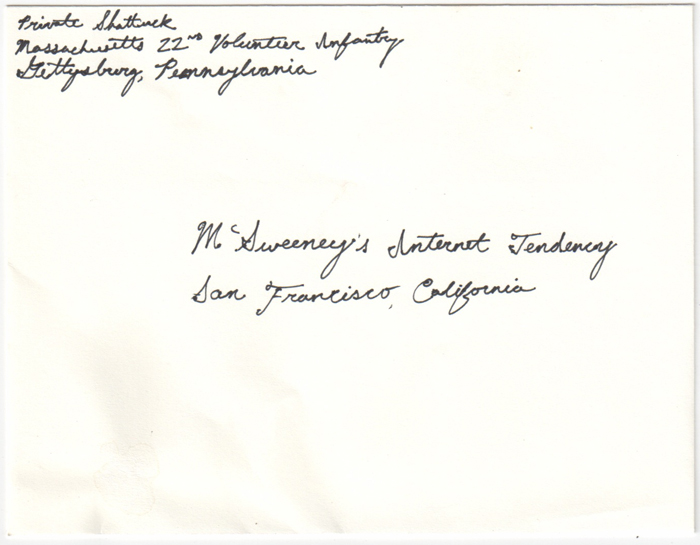 Private Shattuck
Massachusetts 22nd Volunteer Infantry
Gettysburg, Pennsylvania
McSweeney's Internet Tendency
San Francisco, California